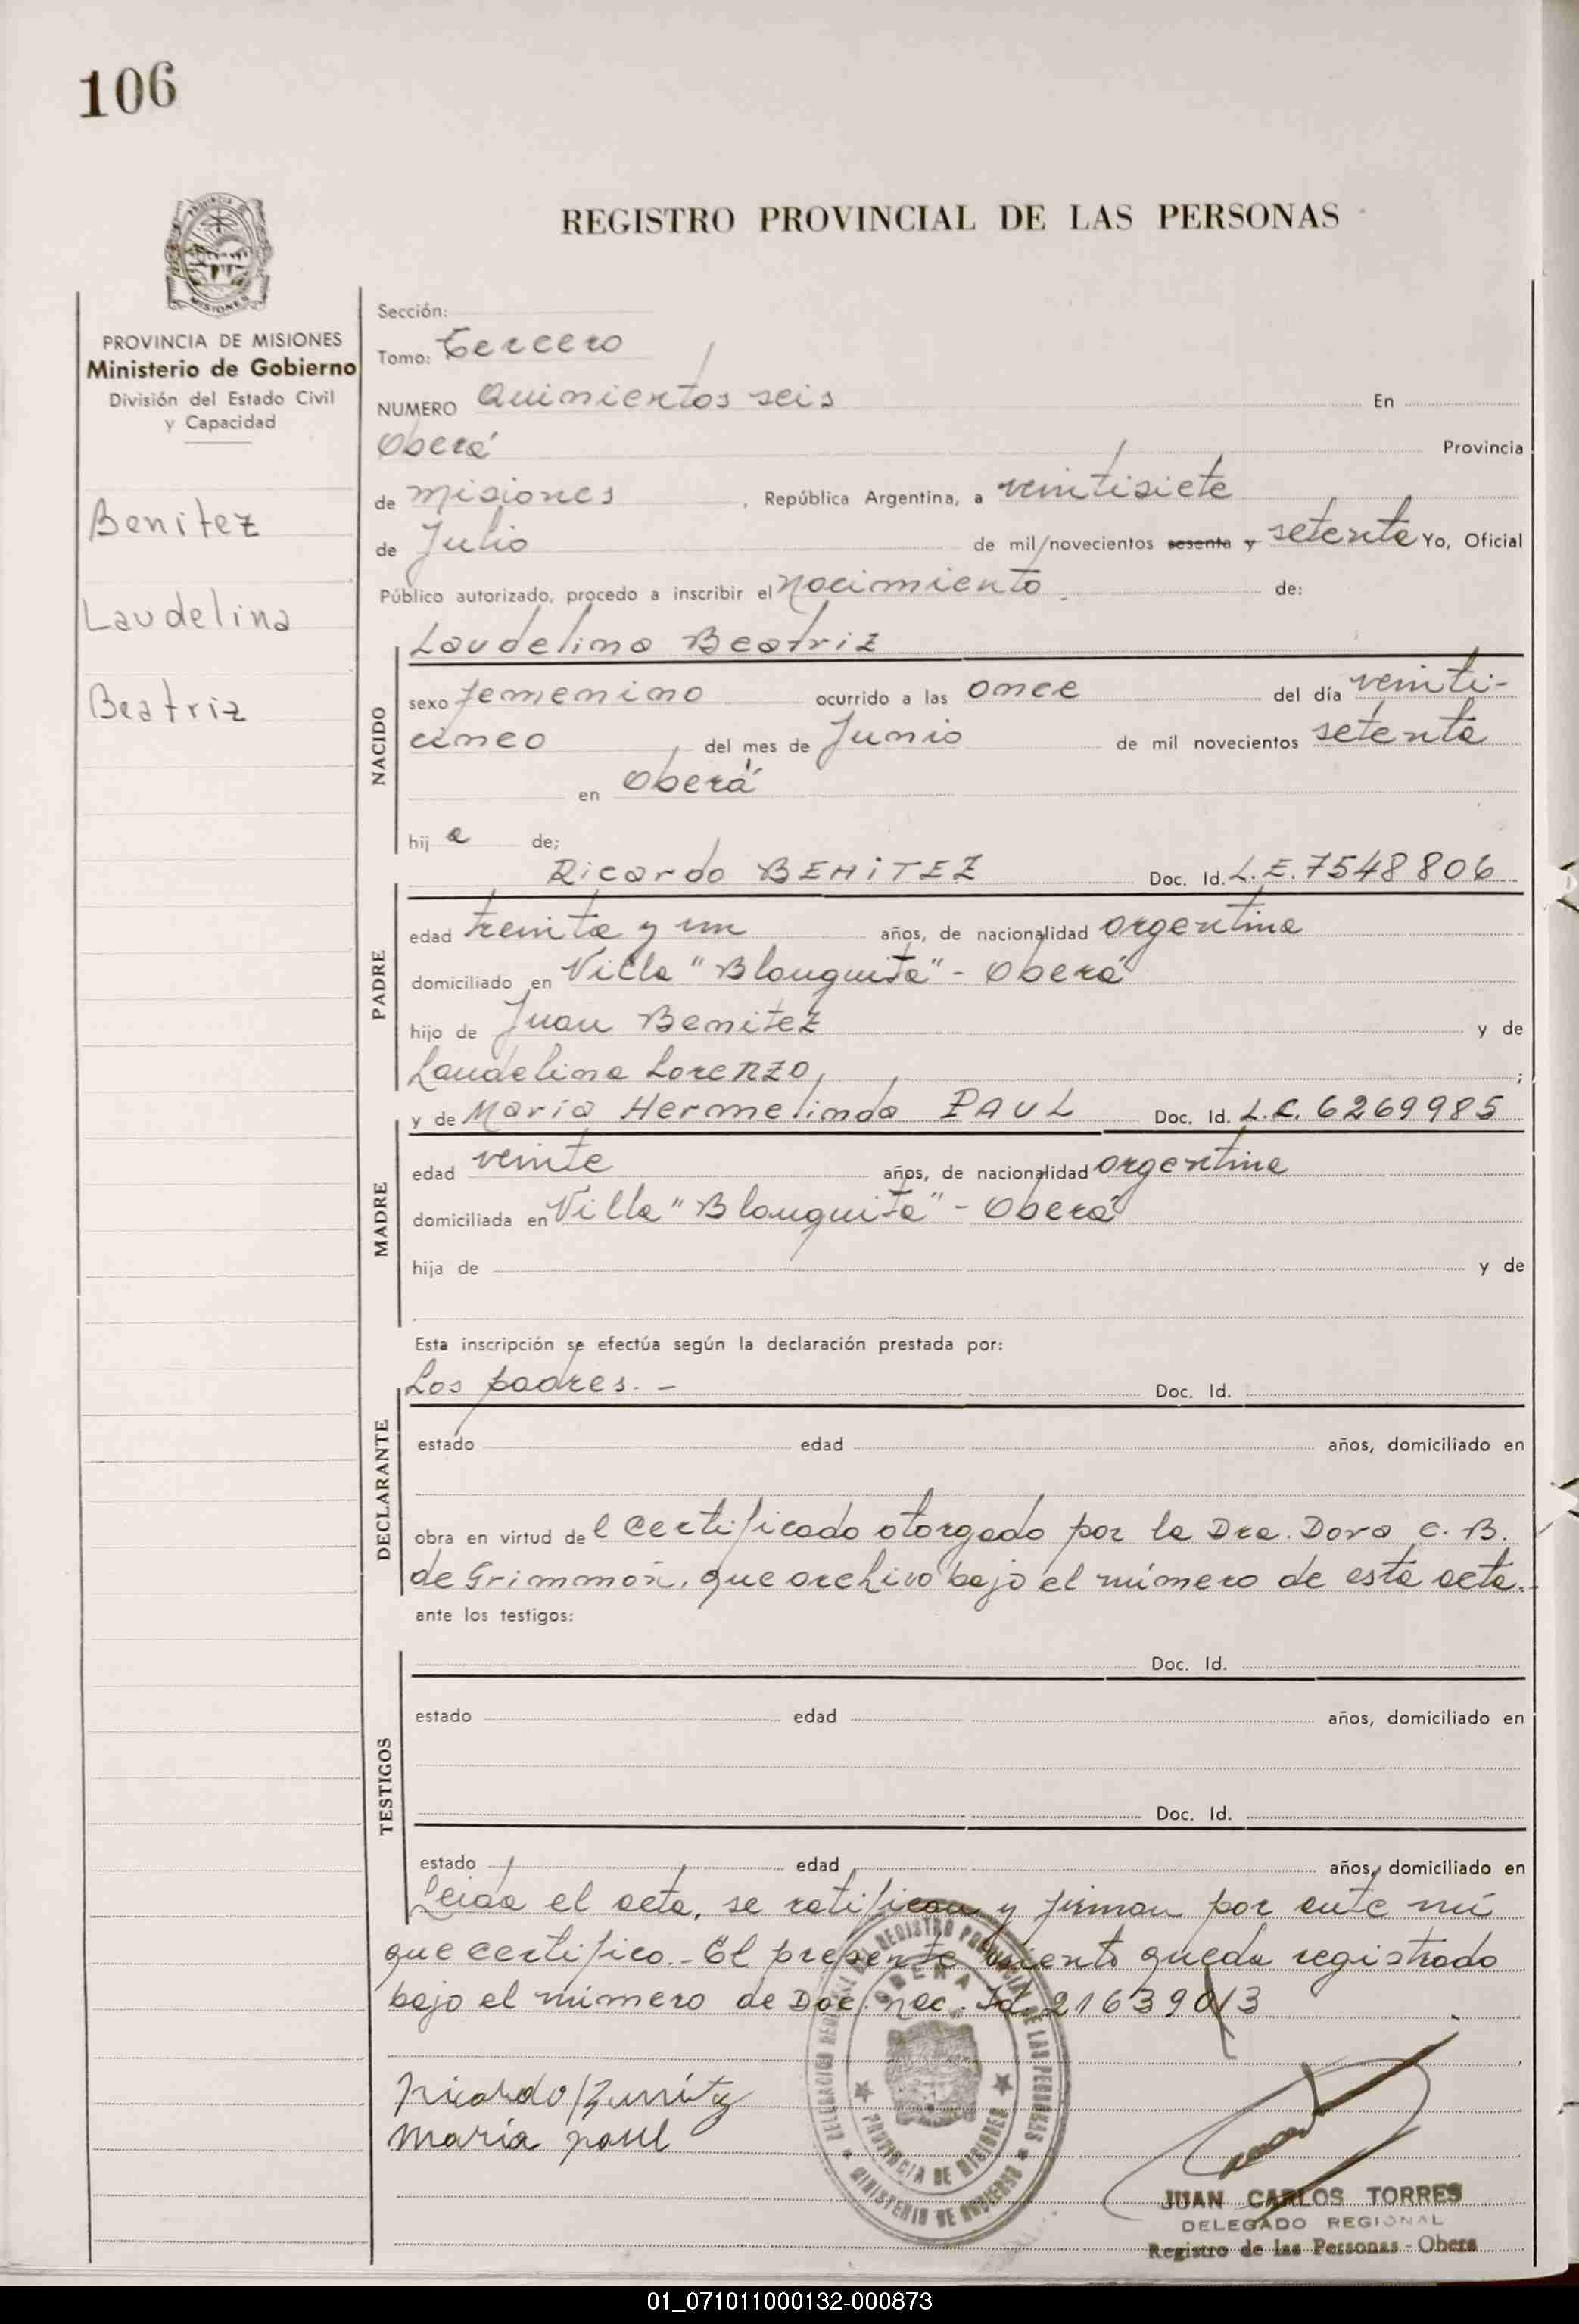 106
REGISTRO PROVINCIAL DE LAS PERSONAS
PROVINCIA DE MISIONES
Ministerio de Gobierno
División del Estado Civil
y Capacidad
Benitez
Laudelina
Beatriz
Sección:
Tomo: Tercero
NUMERO Quinientos seis En
Oberá Provincia
de Misiones, República Argentina, a veintisiete
de Julio de mil novecientos sesenta y setenta Yo, Oficial
Público autorizado, procedo a inscribir el nacimiento de:
Laudelina Beatriz
NACIDO
sexo femenino ocurrido a las once del día veinti-
cinco del mes de Junio de mil novecientos setenta
en Oberá
hij a de;
Ricardo BENITEZ Doc. Id. L.E. 7548806
PADRE
edad treinta y un años, de nacionalidad argentina
domiciliado en Villa "Blanquita" - Oberá
hijo de Juan Benitez y de
Laudelina Lorenzo;
y de María Hermelinda PAUL Doc. Id. L.C. 6269985
MADRE
edad veinte años, de nacionalidad argentina
domiciliada en Villa "Blanquita" - Oberá
hija de y de
Esta inscripción se efectúa según la declaración prestada por:
Los padres. - Doc. Id.
DECLARANTE
estado edad años, domiciliado en
obra en virtud de l certificado otorgado por la Dra. Dora C. B.
de Grimmon, que archivo bajo el número de esta acta.
ante los testigos:
Doc. Id.
TESTIGOS
estado edad años, domiciliado en
Doc. Id.
estado edad años, domiciliado en
Leida el acta, se ratifican y firman por ante mí
que certifico.- El presente asiento queda registrado
bajo el número de Doc. Nac. Id. 21639013
Ricardo Benitez
María paul
DELEGACION REGIONAL DEL REGISTRO PROVINCIAL DE LAS PERSONAS
OBERA
PROVINCIA DE MISIONES
MINISTERIO DE GOBIERNO
JUAN CARLOS TORRES
DELEGADO REGIONAL
Registro de las Personas - Obera
01_071011000132-000873